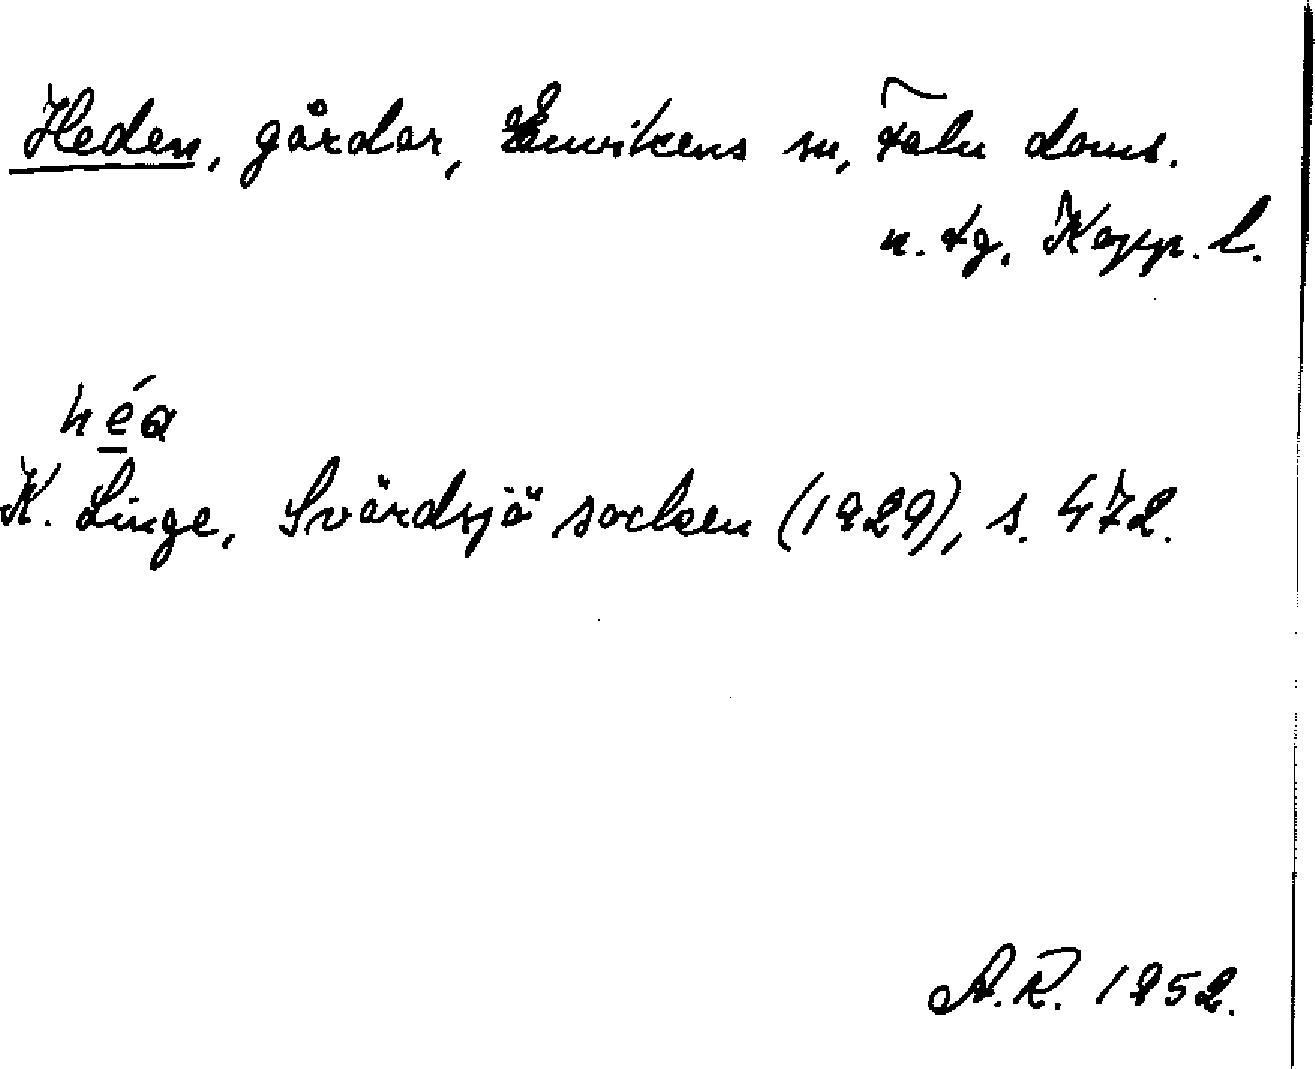 Heden, gårdar, Envikens sn, Falu doms.
n. tg, Kopp. l.
héa
K. Linge, Svärdsjö socken (1929), s. 472.
A.R. 1952.